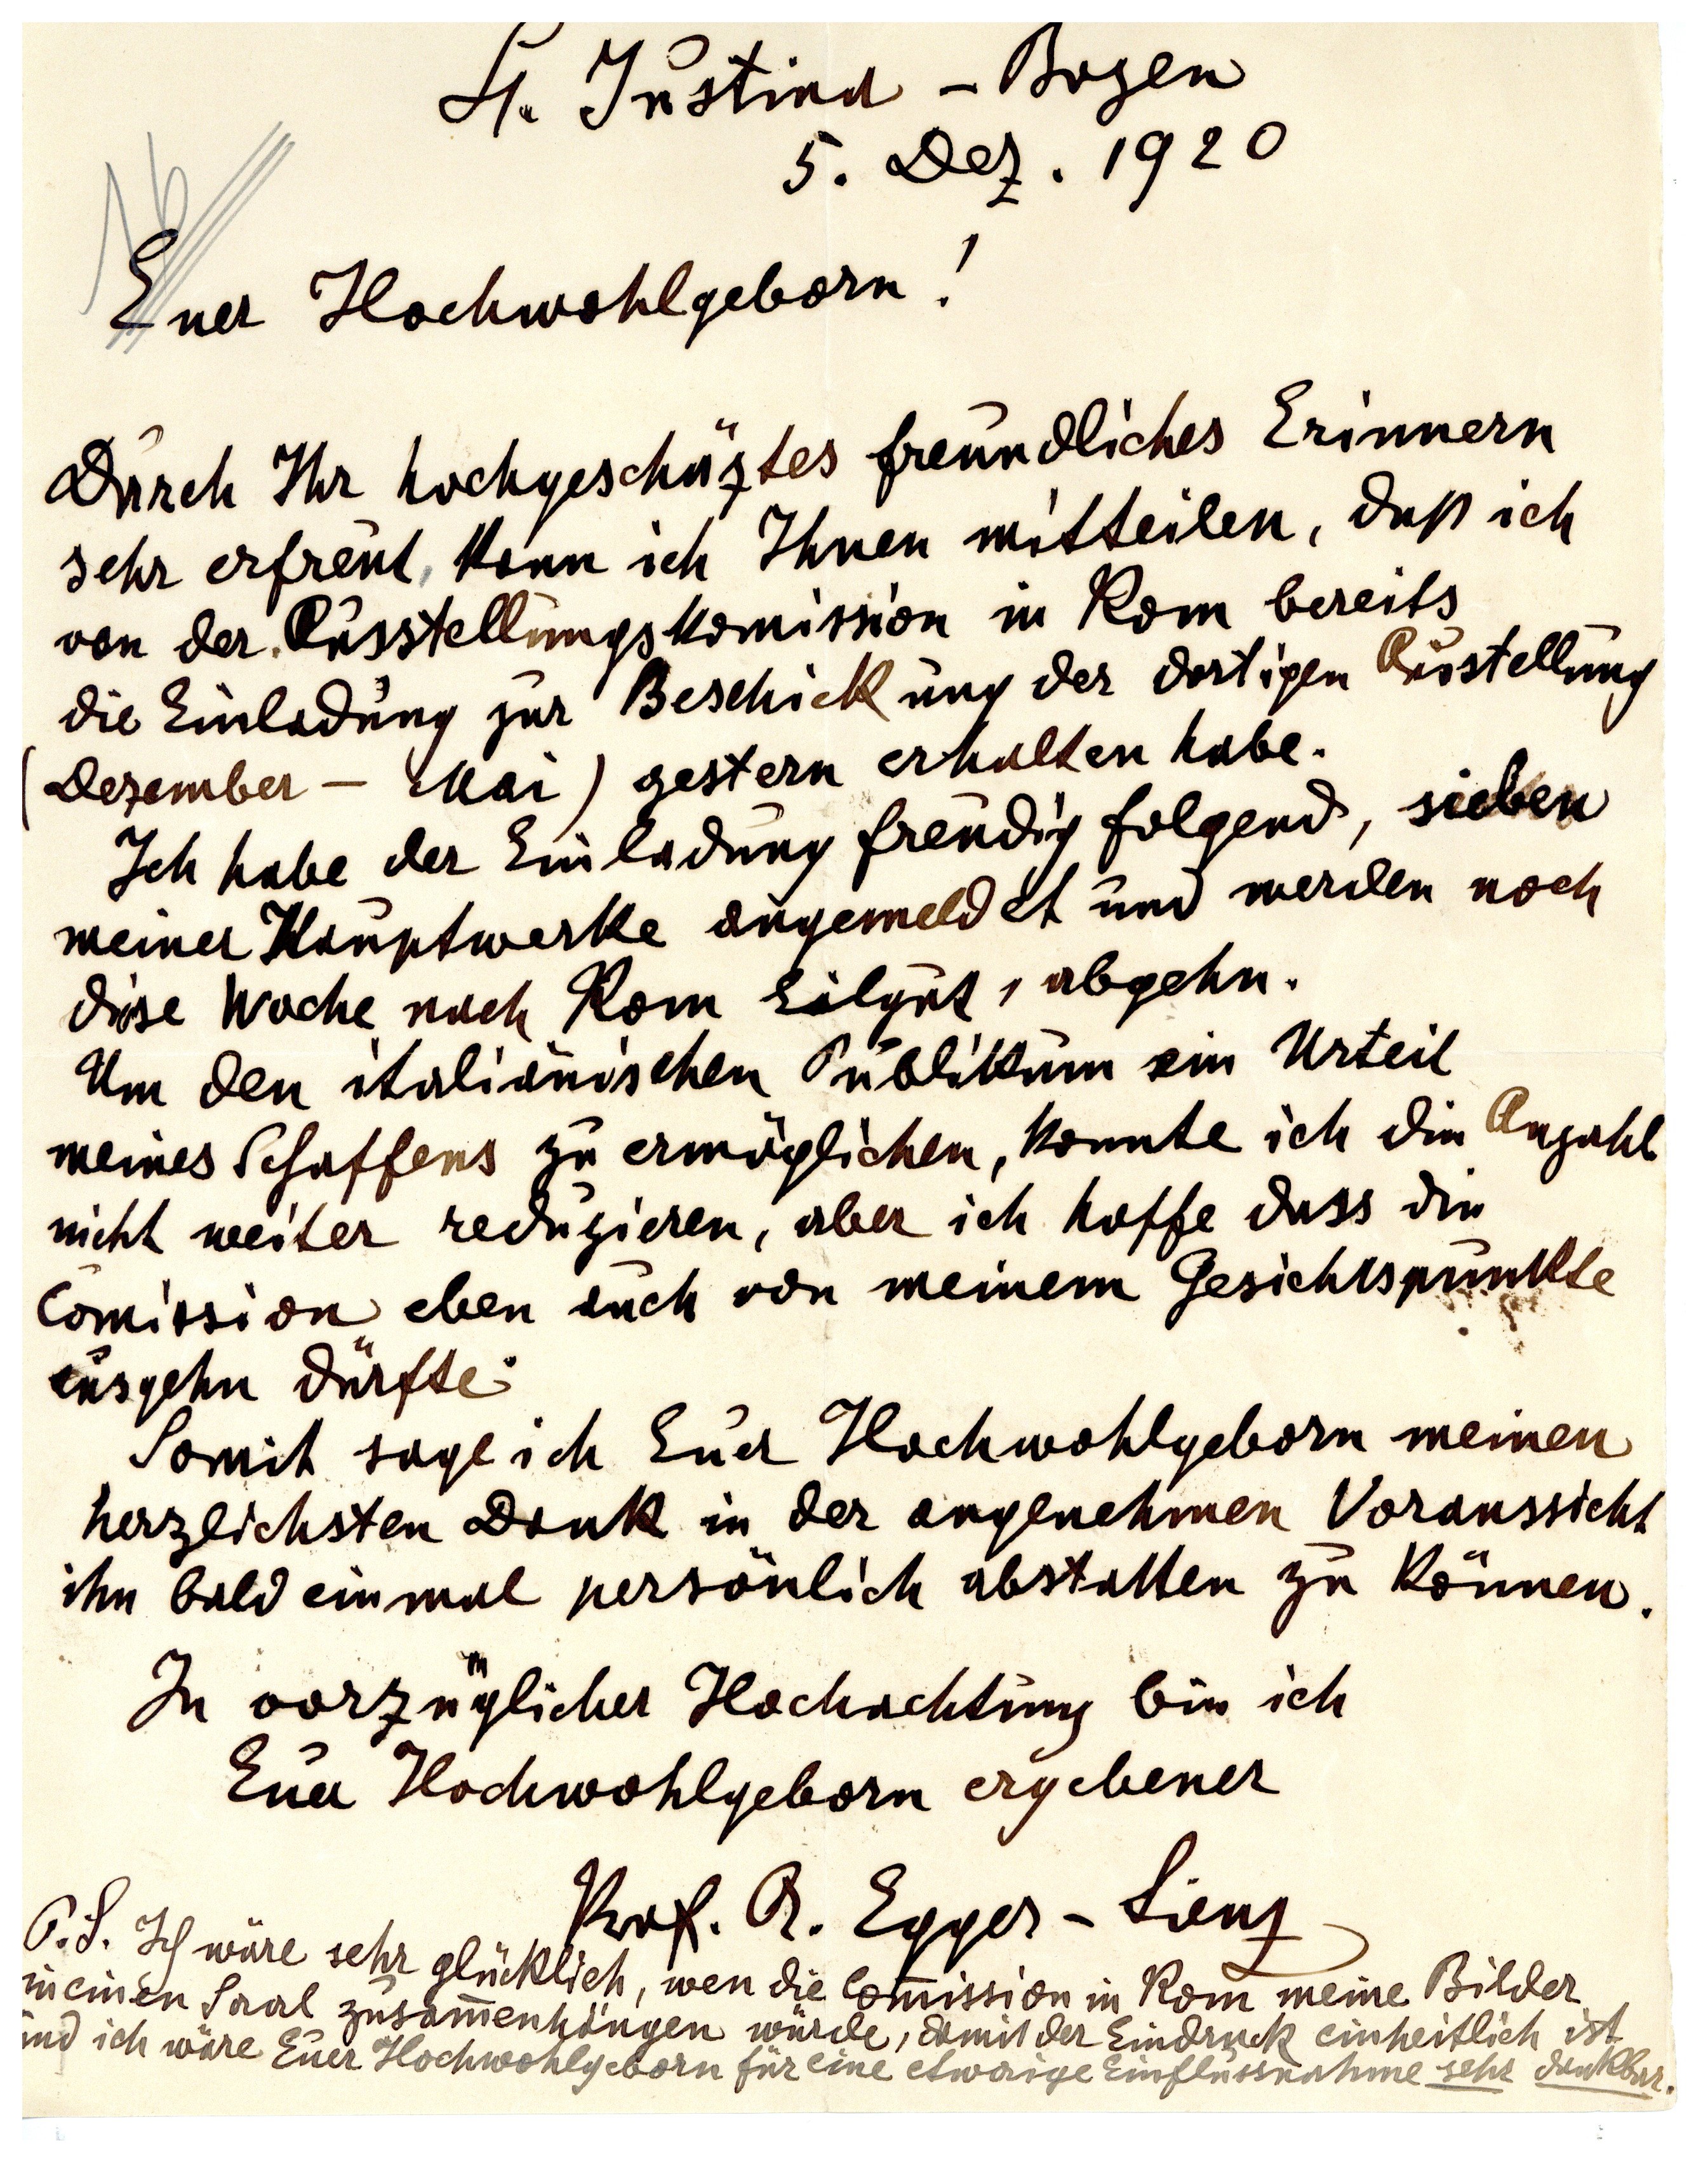 St. Justina – Bozen
5. Dez. 1920
Euer Hochwohlgeborn!
Durch Ihr hochgeschäztes freundliches Erinnern
sehr erfreut, kann ich Ihnen mitteilen, daß ich
von der Ausstellungskomission in Rom bereits
die Einladung zur Beschickung der dortigen Austellung
(Dezember – Mai) gestern erhalten habe.
Ich habe der Einladung freudig folgend, sieben
meiner Hauptwerke angemeldet und werden noch
diese Woche nach Rom Eilgut, abgehn.
Um den italiänischen Publikum ein Urteil
meines Schaffens zu ermöglichen, konnte ich die Anzahl
nicht weiter reduzieren, aber ich hoffe dass die
Comission eben auch von meinem Gesichtspunkte
ausgehn dürfte.
Somit sage ich Euer Hochwohlgeborn meinen
herzlichsten Dank in der angenehmen Voraussicht
ihn bald einmal persönlich abstatten zu können.
In vorzüglicher Hochachtung bin ich
Euer Hochwohlgeborn ergebener
Prof. A. Egger-Lienz
P.S. Ich wäre sehr glücklich, wen die Com̅ission in Rom meine Bilder
in einen Saal zusam̅enhängen würde, damit der Eindruck einheitlich ist
und ich wäre Euer Hochwohlgeborn für eine etwaige Einflussnahme sehr dankbar.